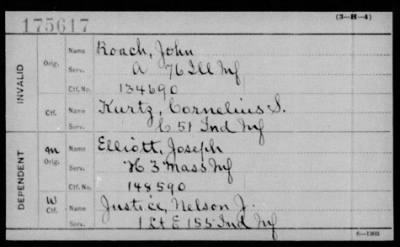 175617
(3-H-4)
INVALID
Orig. Name Roach, John
Serv. A 76 Ill Inf
Ctf. No. 134690
Ctf. Name Kurtz, Cornelius S.
Serv. C 51 Ind Inf
DEPENDENT
m Orig. Name Elliott, Joseph
Serv. H 3 Mass Inf
Ctf. No. 148590
W Ctf. Name Justice, Nelson J.
Serv. 1 Lt E 155 Ind Inf